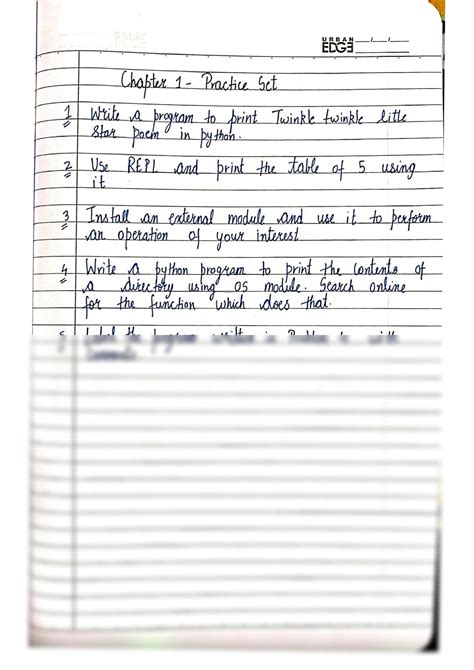 URBAN
EDGE
Chapter 1 - Practice Set
1 Write a program to print Twinkle twinkle little
star poem in python.
2 Use REPL and print the table of 5 using
it
3 Install an external module and use it to perform
an operation of your interest
4 Write a python program to print the contents of
a directory using os module. Search online
for the function which does that.
5 Label the program written in Problem 4 with
comments